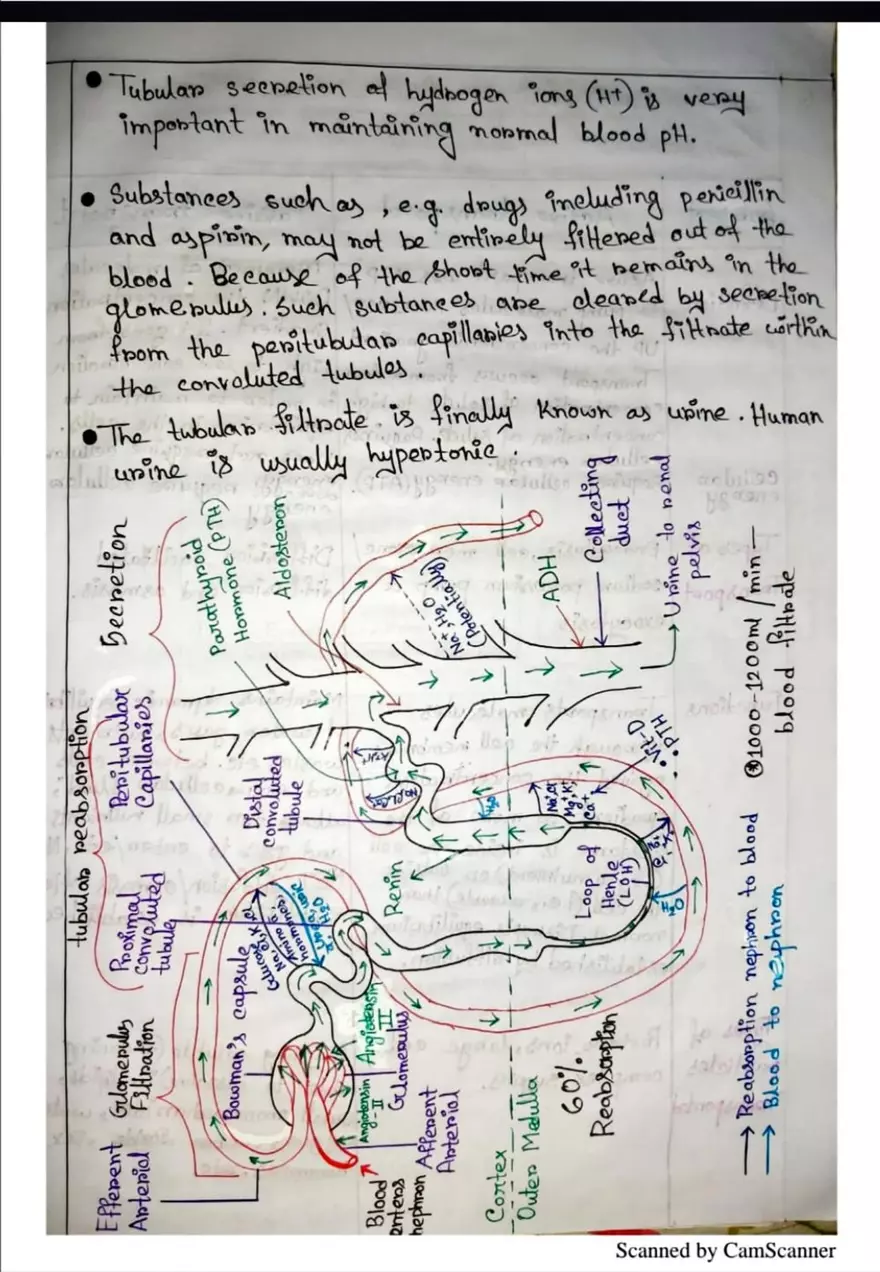 • Tubular secretion of hydrogen ions (H+) is very
important in maintaining normal blood pH.
• Substances such as, e.g. drugs including penicillin
and aspirin, may not be entirely filtered out of the
blood. Because of the short time it remains in the
glomerulus. Such subtances are cleared by secretion
from the peritubular capillaries into the filtrate worthin
the convoluted tubules.
• The tubular filtrate is finally known as urine. Human
urine is usually hypertonic.
Secretion
Parathyroid
Hormone (PTH)
Aldosteron
Na+, H2O
(Potentially)
ADH
Collecting
duct
Urine to renal
pelvis
tubular reabsorption
Peritubular
Capillaries
Distal
convoluted
tubule
Proximal
convoluted
tubule
Renin
H2O
Loop of
Henle
(LOH)
• Vit-D
• PTH
H2O
Glomerulus
Filtration
Bowman's capsule
Angiotensin
II
Angiotensin
-II
Glomerulus
Efferent
Arterial
Afferent
Arterial
Blood
enters
nephron
Cortex
Outer Medulla
60%
Reabsorption
1000-1200ml/min —
blood filtrate
→ Reabsorption nephron to blood
→ Blood to nephron
Scanned by CamScanner